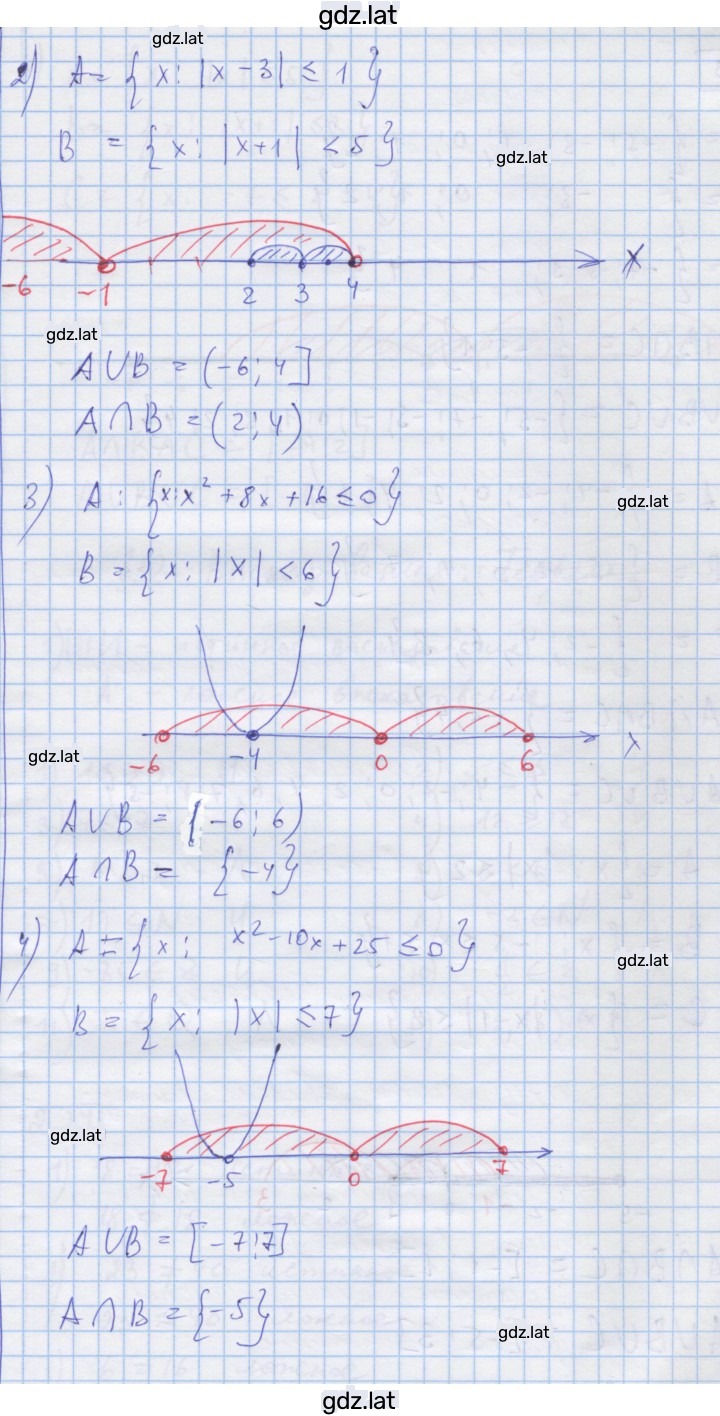 gdz.lat
gdz.lat
2) A = { x: |x - 3| ≤ 1 }
B = { x: |x+1| < 5 }
gdz.lat
x
-6 -1 2 3 4
gdz.lat
A ∪ B = (-6; 4]
A ∩ B = (2; 4)
3) A : {x: x² + 8x + 16 ≤ 0}
gdz.lat
B = { x: |x| < 6 }
-6 -4 0 6 x
gdz.lat
A ∪ B = (-6; 6)
A ∩ B = {-4}
4) A = { x: x² - 10x + 25 ≤ 0 }
gdz.lat
B = { x: |x| ≤ 7 }
gdz.lat
-7 -5 0 7
A ∪ B = [-7; 7]
A ∩ B = {-5}
gdz.lat
gdz.lat